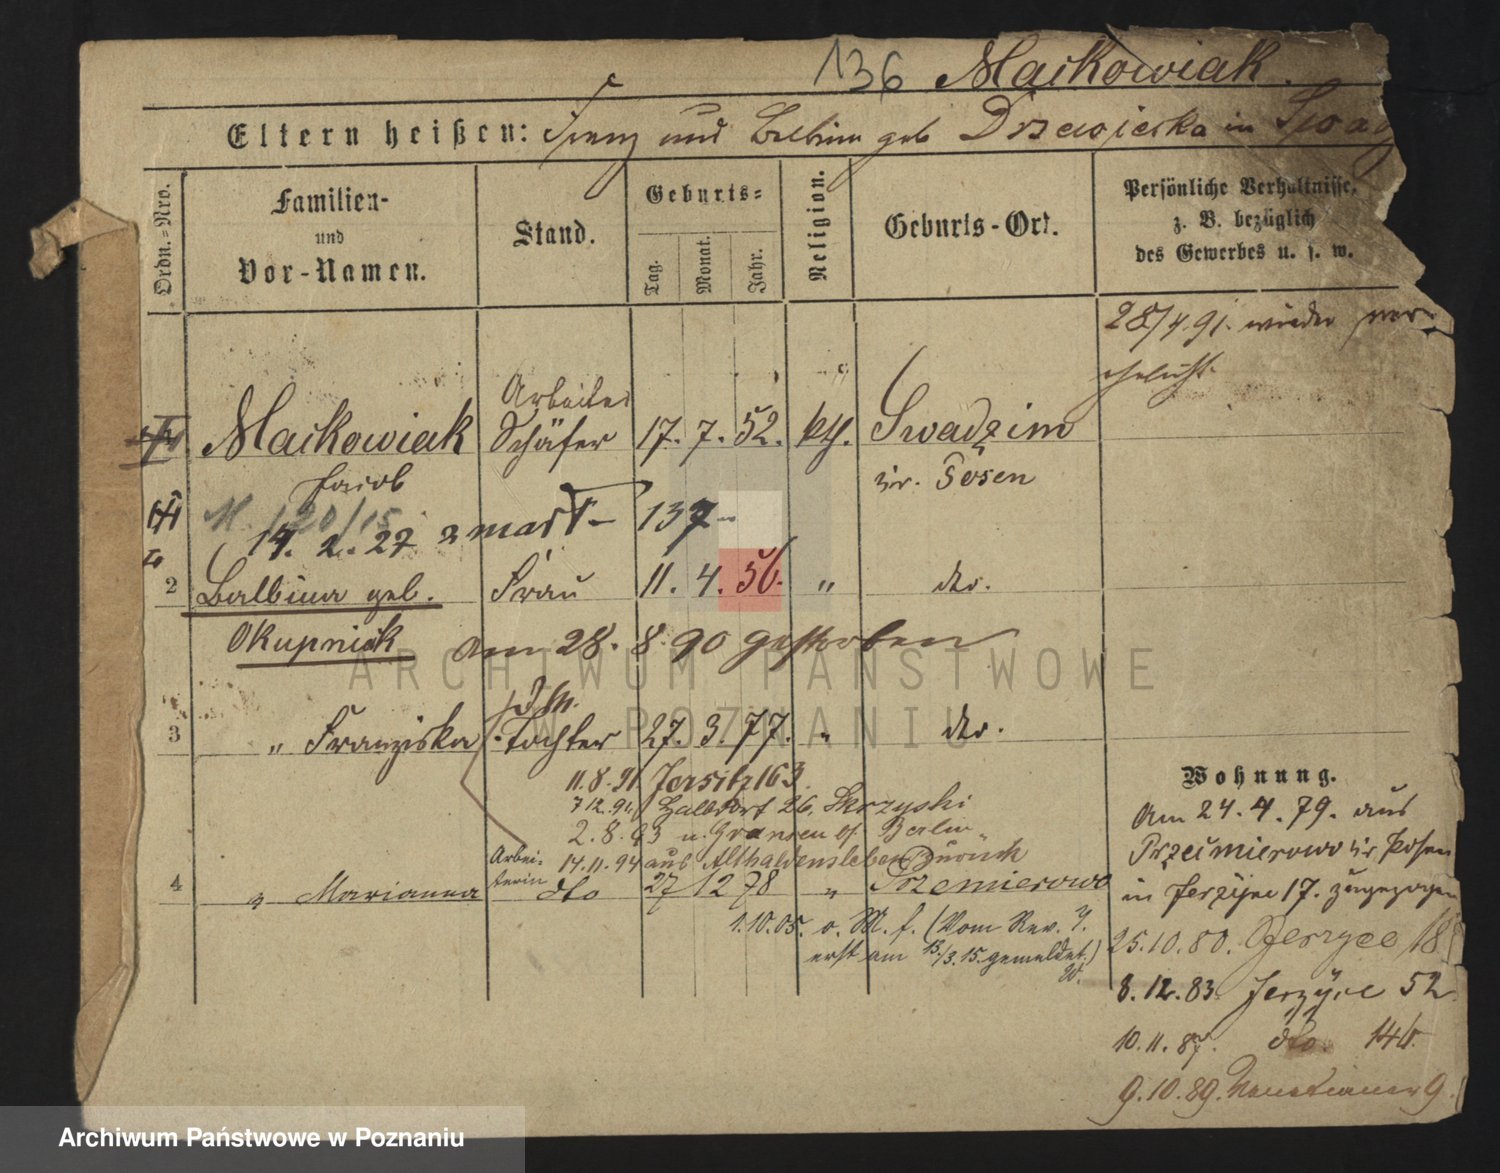 136 Maikowiak.
Eltern heißen: Franz und Balbina geb Drzewiecka in Swadz
Ordn.-Nro.
Familien-
und
Vor-Namen.
Stand.
Geburts-
Tag.
Monat.
Jahr.
Religion.
Geburts-Ort.
Persönliche Verhältnisse,
z. B. bezüglich
des Gewerbes u. s. w.
28/4.91. wieder ver-
ehelicht
Arbeiter
Maikowiak Schäfer 17. 7. 52. kth. Swadzim
Jacob Kr. Posen
14. 2. 27 137
2 Balbina geb. Frau 11. 4. 56. " dto.
Okupniak am 28. 8. 90 gestorben
3 " Franziska Tochter 27. 3. 77. " dto.
11.8.91 Jersitz 163
7 12.91 26, Skrzyski
2.8.93 n. Gransen bf. Berlin
Arbei- 14.11.94 aus Althaldensleben Zurück
terin
4 " Marianna dto 27 12 78 " Przemierowo
1.10.05. o. M. f. (Vom Rev. 7.
erst am 13/3.15. gemeldet.)
Wohnung.
Am 24.4.79. aus
Przeimierowo Kr Posen
in Jerzyce 17. zugezogen
25.10.80. Jerzyce 18
8.12.83. Jerzyce 52
10.11.87. dto. 146
9.10.89. 9.
ARCHIWUM PAŃSTWOWE
W POZNANIU
Archiwum Państwowe w Poznaniu